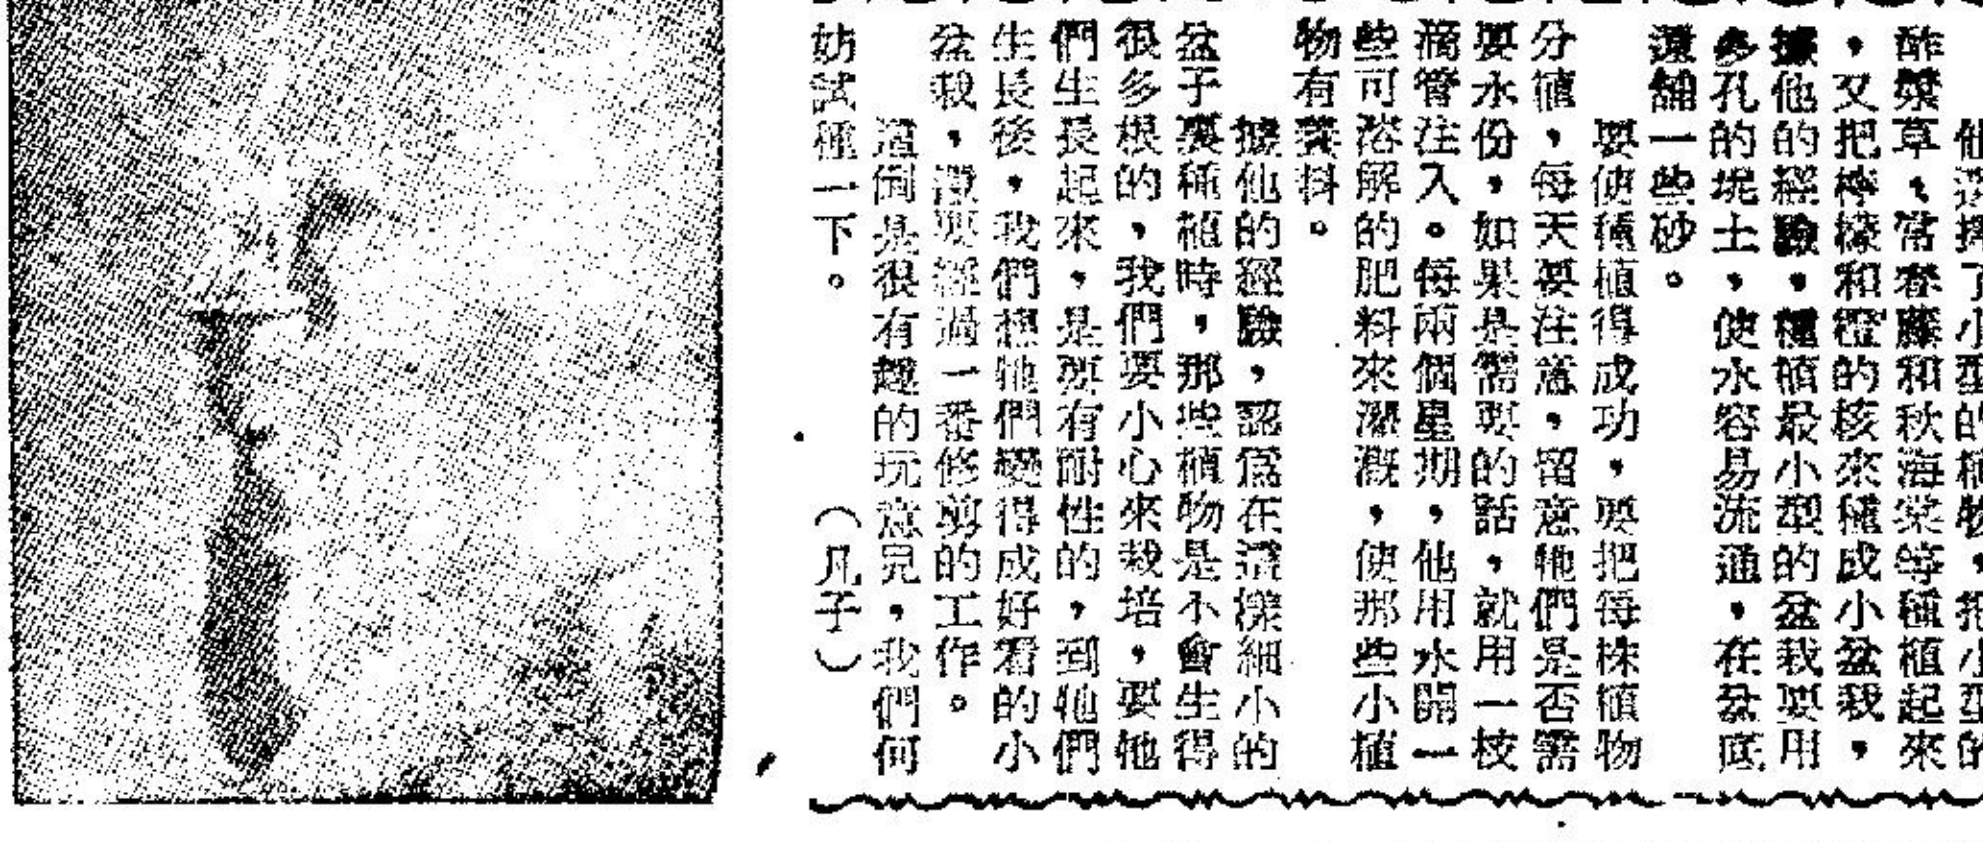 他選擇了小型的植物，把小型的
酢漿草、常春藤和秋海棠等種植起來
，又把檸檬和橙的核來種成小盆栽，
據他的經驗，種植最小型的盆栽要用
多孔的坭土，使水容易流通，在盆底
還舖一些砂。
要使種植得成功，要把每株植物
分植，每天要注意，留意牠們是否需
要水份，如果是需要的話，就用一枝
滴管注入。每兩個星期，他用水開一
些可溶解的肥料來灌溉，使那些小植
物有養料。
據他的經驗，認爲在這樣細小的
盆子要種植時，那些植物是不會生得
很多根的，我們要小心來栽培，要牠
們生長起來，是要有耐性的，到牠們
生長後，我們想牠們變得成好看的小
盆栽，還要經過一番修剪的工作。
這倒是很有趣的玩意兒，我們何
妨試種一下。　　（凡子）